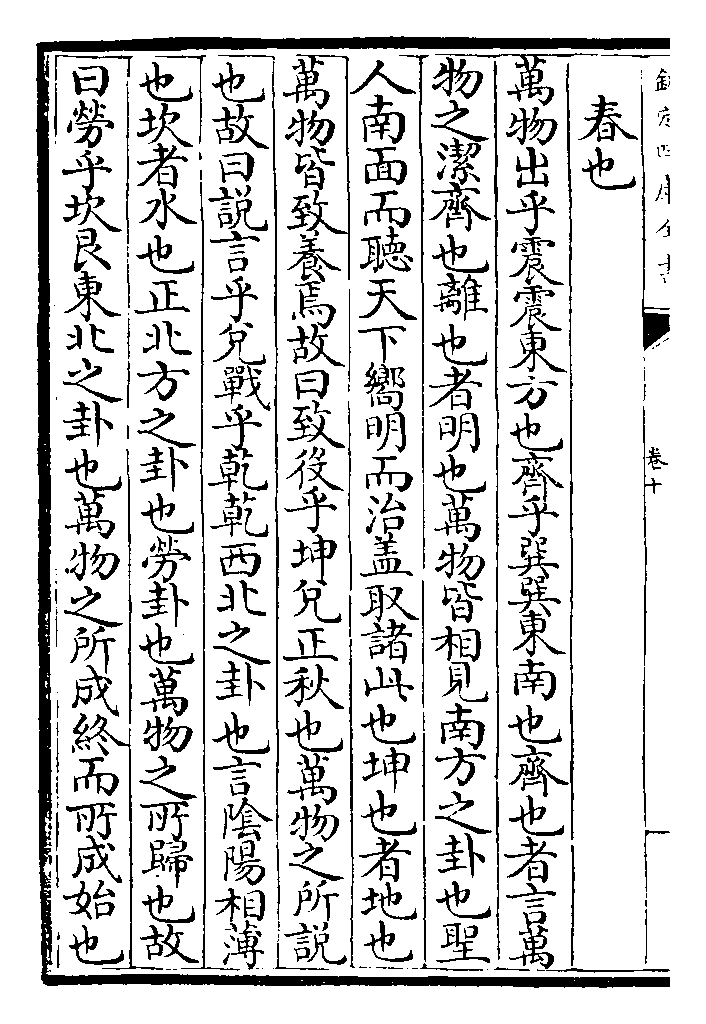 欽定四庫全書
卷十
春也
萬物出乎震震東方也齊乎巽巽東南也齊也者言萬
物之潔齊也離也者明也萬物皆相見南方之卦也聖
人南面而聽天下嚮明而治盖取諸此也坤也者地也
萬物皆致養焉故曰致役乎坤兌正秋也萬物之所說
也故曰說言乎兌戰乎乾乾西北之卦也言陰陽相薄
也坎者水也正北方之卦也勞卦也萬物之所歸也故
曰勞乎坎艮東北之卦也萬物之所成終而所成始也